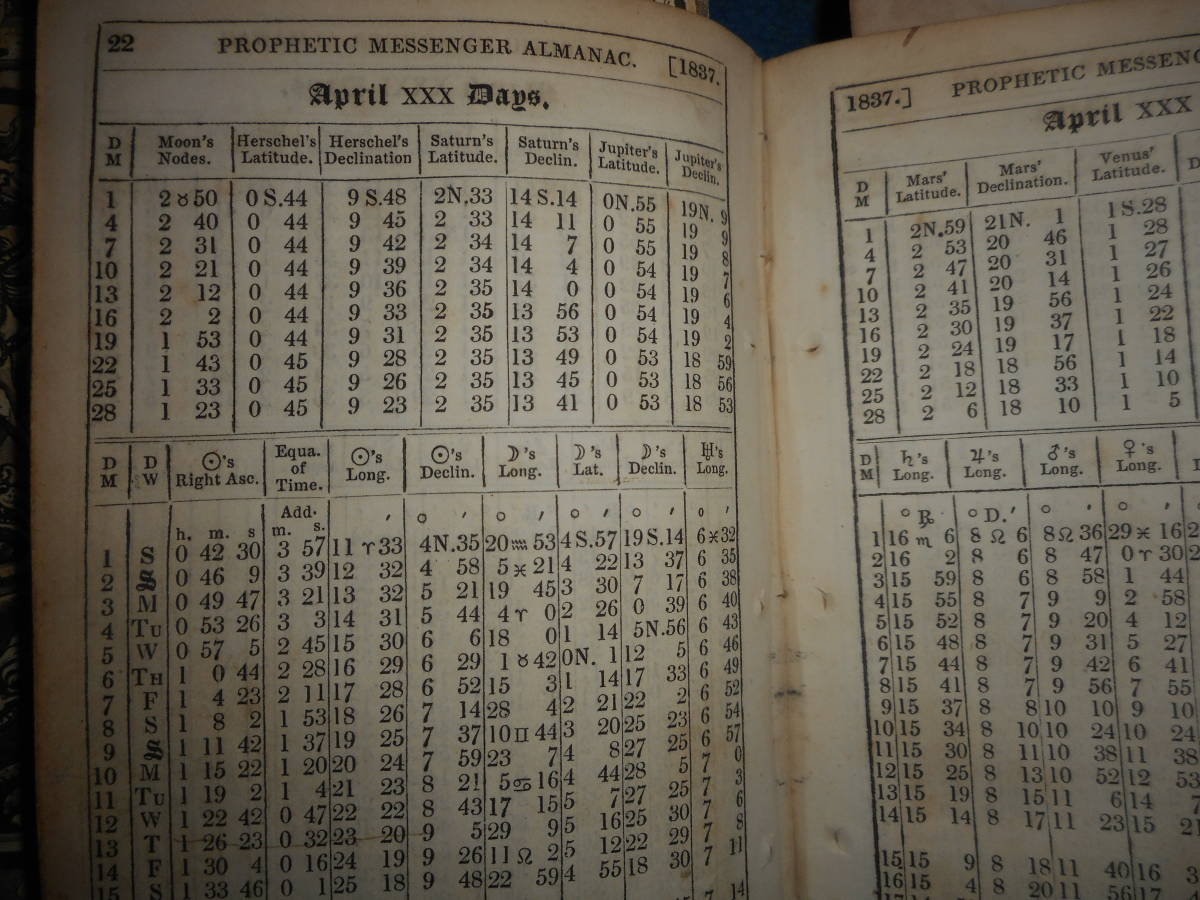 22 PROPHETIC MESSENGER ALMANAC. [1837.
April XXX Days.
D M Moon's Nodes. Herschel's Latitude. Herschel's Declination Saturn's Latitude. Saturn's Declin. Jupiter's Latitude. Jupiter's Declin.
1 2 ♉ 50 0 S.44 9 S.48 2N.33 14 S.14 0N.55 19N. 9
4 2 40 0 44 9 45 2 33 14 11 0 55 19 9
7 2 31 0 44 9 42 2 34 14 7 0 55 19 8
10 2 21 0 44 9 39 2 34 14 4 0 54 19 7
13 2 12 0 44 9 36 2 35 14 0 0 54 19 6
16 2 2 0 44 9 33 2 35 13 56 0 54 19 4
19 1 53 0 44 9 31 2 35 13 53 0 54 19 2
22 1 43 0 45 9 28 2 35 13 49 0 53 18 59
25 1 33 0 45 9 26 2 35 13 45 0 53 18 56
28 1 23 0 45 9 23 2 35 13 41 0 53 18 53
D M D W ☉'s Right Asc. Equa. of Time. ☉'s Long. ☉'s Declin. ☽'s Long. ☽'s Lat. ☽'s Declin. ♅'s Long.
h. m. s Add. m. s. ′ ° ′ ° ′ ° ′ ° ′ ° ′
1 S 0 42 30 3 57 11 ♈ 33 4N.35 20 ♒ 53 4 S.57 19 S.14 6 ♓ 32
2 S 0 46 9 3 39 12 32 4 58 5 ♓ 21 4 22 13 37 6 35
3 M 0 49 47 3 21 13 32 5 21 19 45 3 30 7 17 6 38
4 TU 0 53 26 3 3 14 31 5 44 4 ♈ 0 2 26 0 39 6 40
5 W 0 57 5 2 45 15 30 6 6 18 0 1 14 5N.56 6 43
6 TH 1 0 44 2 28 16 29 6 29 1 ♉ 42 0N. 1 12 5 6 46
7 F 1 4 23 2 11 17 28 6 52 15 3 1 14 17 33 6 49
8 S 1 8 2 1 53 18 26 7 14 28 4 2 21 22 2 6 52
9 S 1 11 42 1 37 19 25 7 37 10 ♊ 44 3 20 25 23 6 54
10 M 1 15 22 1 20 20 24 7 59 23 7 4 8 27 25 6 57
11 TU 1 19 2 1 4 21 23 8 21 5 ♋ 16 4 44 28 5 7 0
12 W 1 22 42 0 47 22 22 8 43 17 15 5 7 27 25 7 3
13 T 1 26 23 0 32 23 20 9 5 29 9 5 16 25 30 7 6
14 F 1 30 4 0 16 24 19 9 26 11 ♌ 2 5 12 22 29 7 8
15 S 1 33 46 0 1 25 18 9 48 22 59 4 55 18 30 7 11
7 14
1837.] PROPHETIC MESSENG
April XXX
D M Mars' Latitude. Mars' Declination. Venus' Latitude. D
1 2N.59 21N. 1 1 S.28
4 2 53 20 46 1 28
7 2 47 20 31 1 27
10 2 41 20 14 1 26
13 2 35 19 56 1 24
16 2 30 19 37 1 22
19 2 24 19 17 1 18
22 2 18 18 56 1 14
25 2 12 18 33 1 10
28 2 6 18 10 1 5
D M ♄'s Long. ♃'s Long. ♂'s Long. ♀'s Long.
° ℞ ° D. ′ ° ′ ° ′
1 16 ♏ 6 8 ♌ 6 8 ♌ 36 29 ♓ 16
2 16 2 8 6 8 47 0 ♈ 30
3 15 59 8 6 8 58 1 44
4 15 55 8 7 9 9 2 58
5 15 52 8 7 9 20 4 12
6 15 48 8 7 9 31 5 27
7 15 44 8 7 9 42 6 41
8 15 41 8 7 9 56 7 55
9 15 37 8 8 10 10 9 10
10 15 34 8 10 10 24 10 24
11 15 30 8 11 10 38 11 38
12 15 25 8 13 10 52 12 53
13 15 19 8 15 11 6 14 7
14 15 14 8 17 11 23 15 21
15 15 9 8 18 11 40 16 3
16 15 4 8 20 11 56 17 4